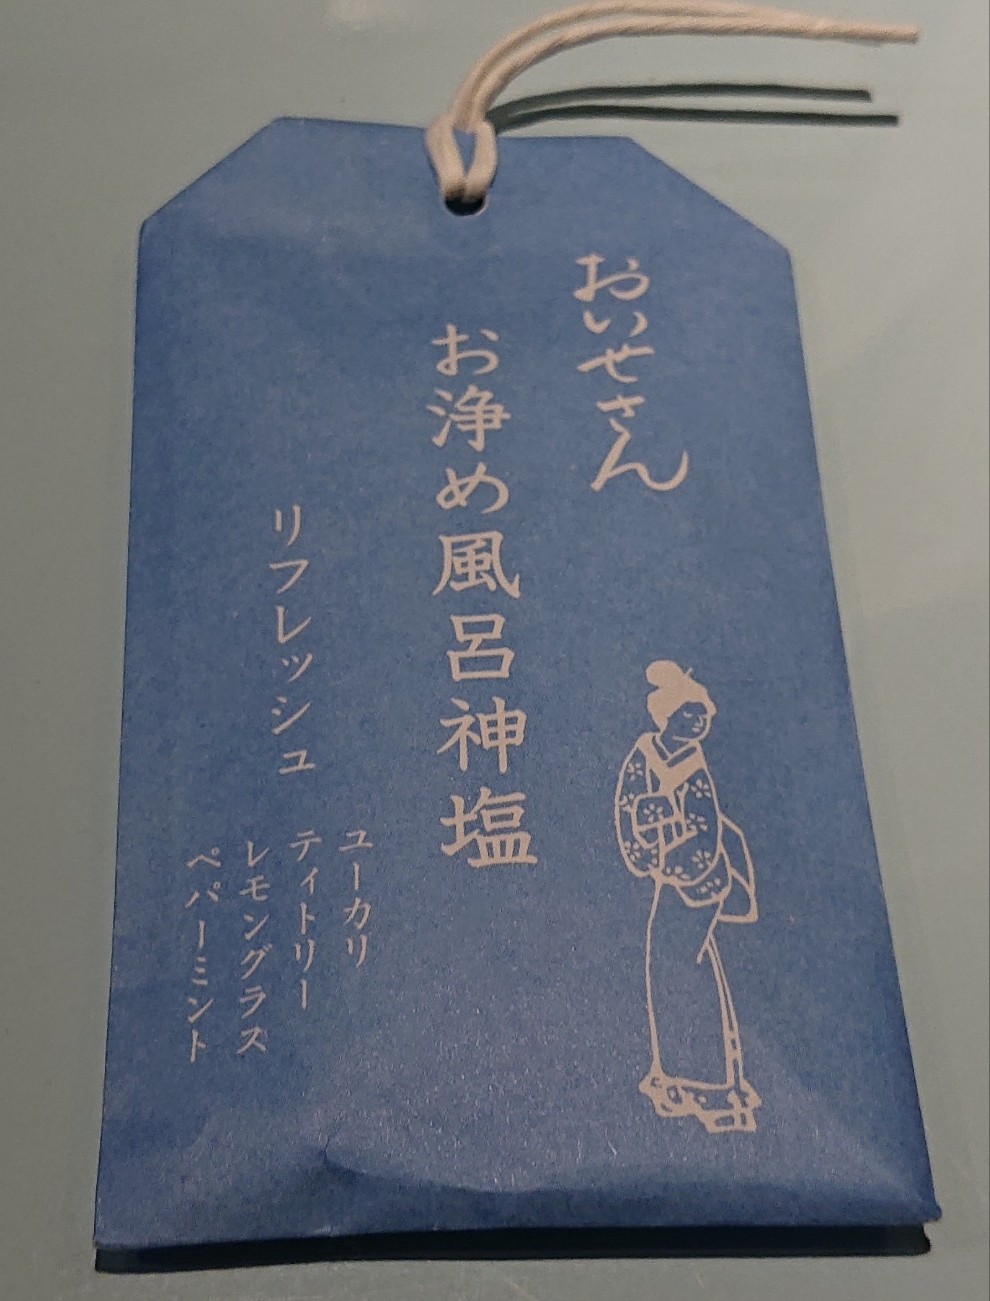 おいせさん
お浄め風呂神塩
リフレッシュ
ユーカリ
ティトリー
レモングラス
ペパーミント